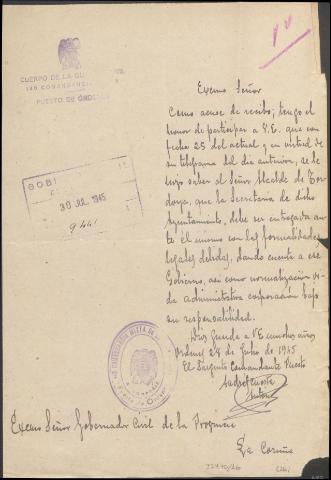 CUERPO DE LA GUARDIA CIVIL
140 COMANDANCIA
PUESTO DE ÓRDENES
30 JUL. 1945
9441
Excmo Señor
Como acuse de recibo; tengo el
honor de participar a V.E. que con
fecha 25 del actual y en virtud de
su telegrama del dia anterior, se le
hizo saber el Señor Alcalde de Tor-
doya, que la Secretaria de dicho
Ayuntamiento, debe ser entregada an-
te él mismo con las formalidades
legales debidas, dando cuenta a ese
Gobierno, asi como normalización vi-
da administrativa corporación bajo
su responsabilidad.
Dios Guarde a VE muchos años
Ordenes 28 de Julio de 1945
El Sargento Comandante Puesto
Antonio
Excmo Señor Gobernador Civil de la Provincia
La Coruña